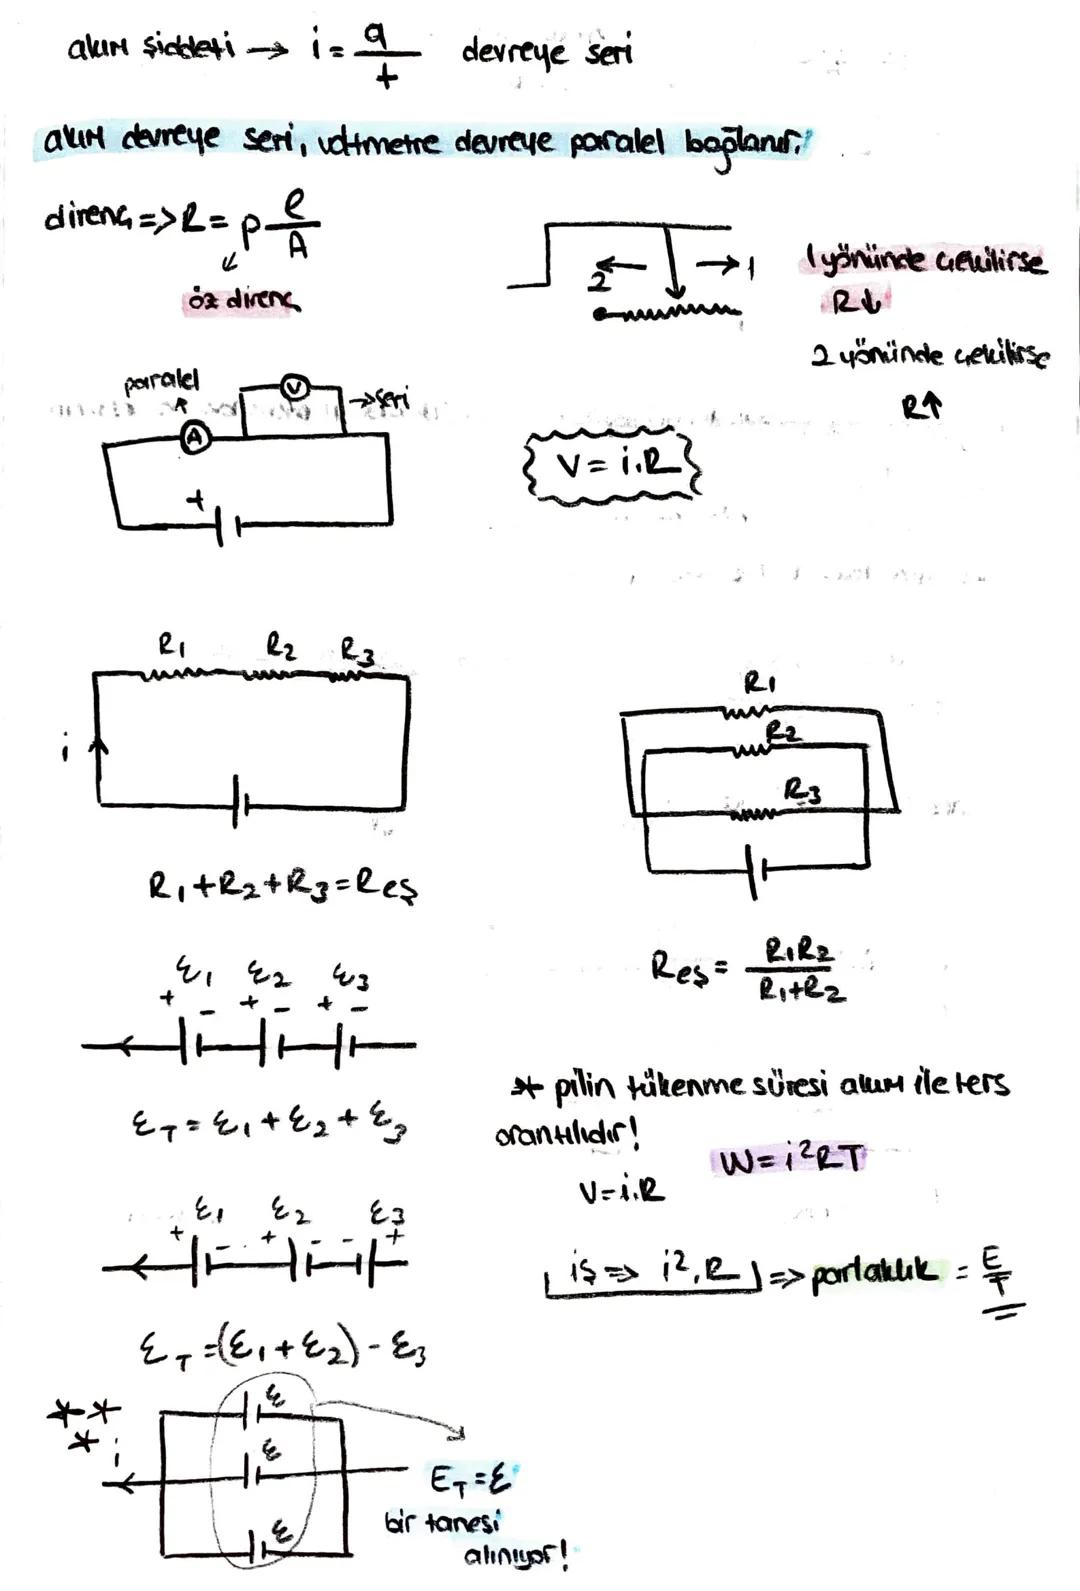 akım şiddeti → i = q/t devreye seri
akım devreye seri, voltmetre devreye paralel bağlanır!
direnç => R = ρ l/A
öz direnç
2 ← → 1
1 yönünde çekilirse
R↓
2 yönünde çekilirse
R↑
paralel
V → seri
A
+
V = i.R
R1 R2 R3
i
R1+R2+R3=Reş
R1
R2
R3
Reş = R1R2/R1+R2
ε1 ε2 ε3
+ - + - + -
εT = ε1 + ε2 + ε3
* pilin tükenme süresi akım ile ters
orantılıdır!
W = i²RT
V = i.R
iş => i².R => parlaklık = E/T
ε1 ε2 ε3
+ - + - - +
εT = (ε1 + ε2) - ε3
***
i
ε
ε
ε
ET = ε
bir tanesi
alınıyor!